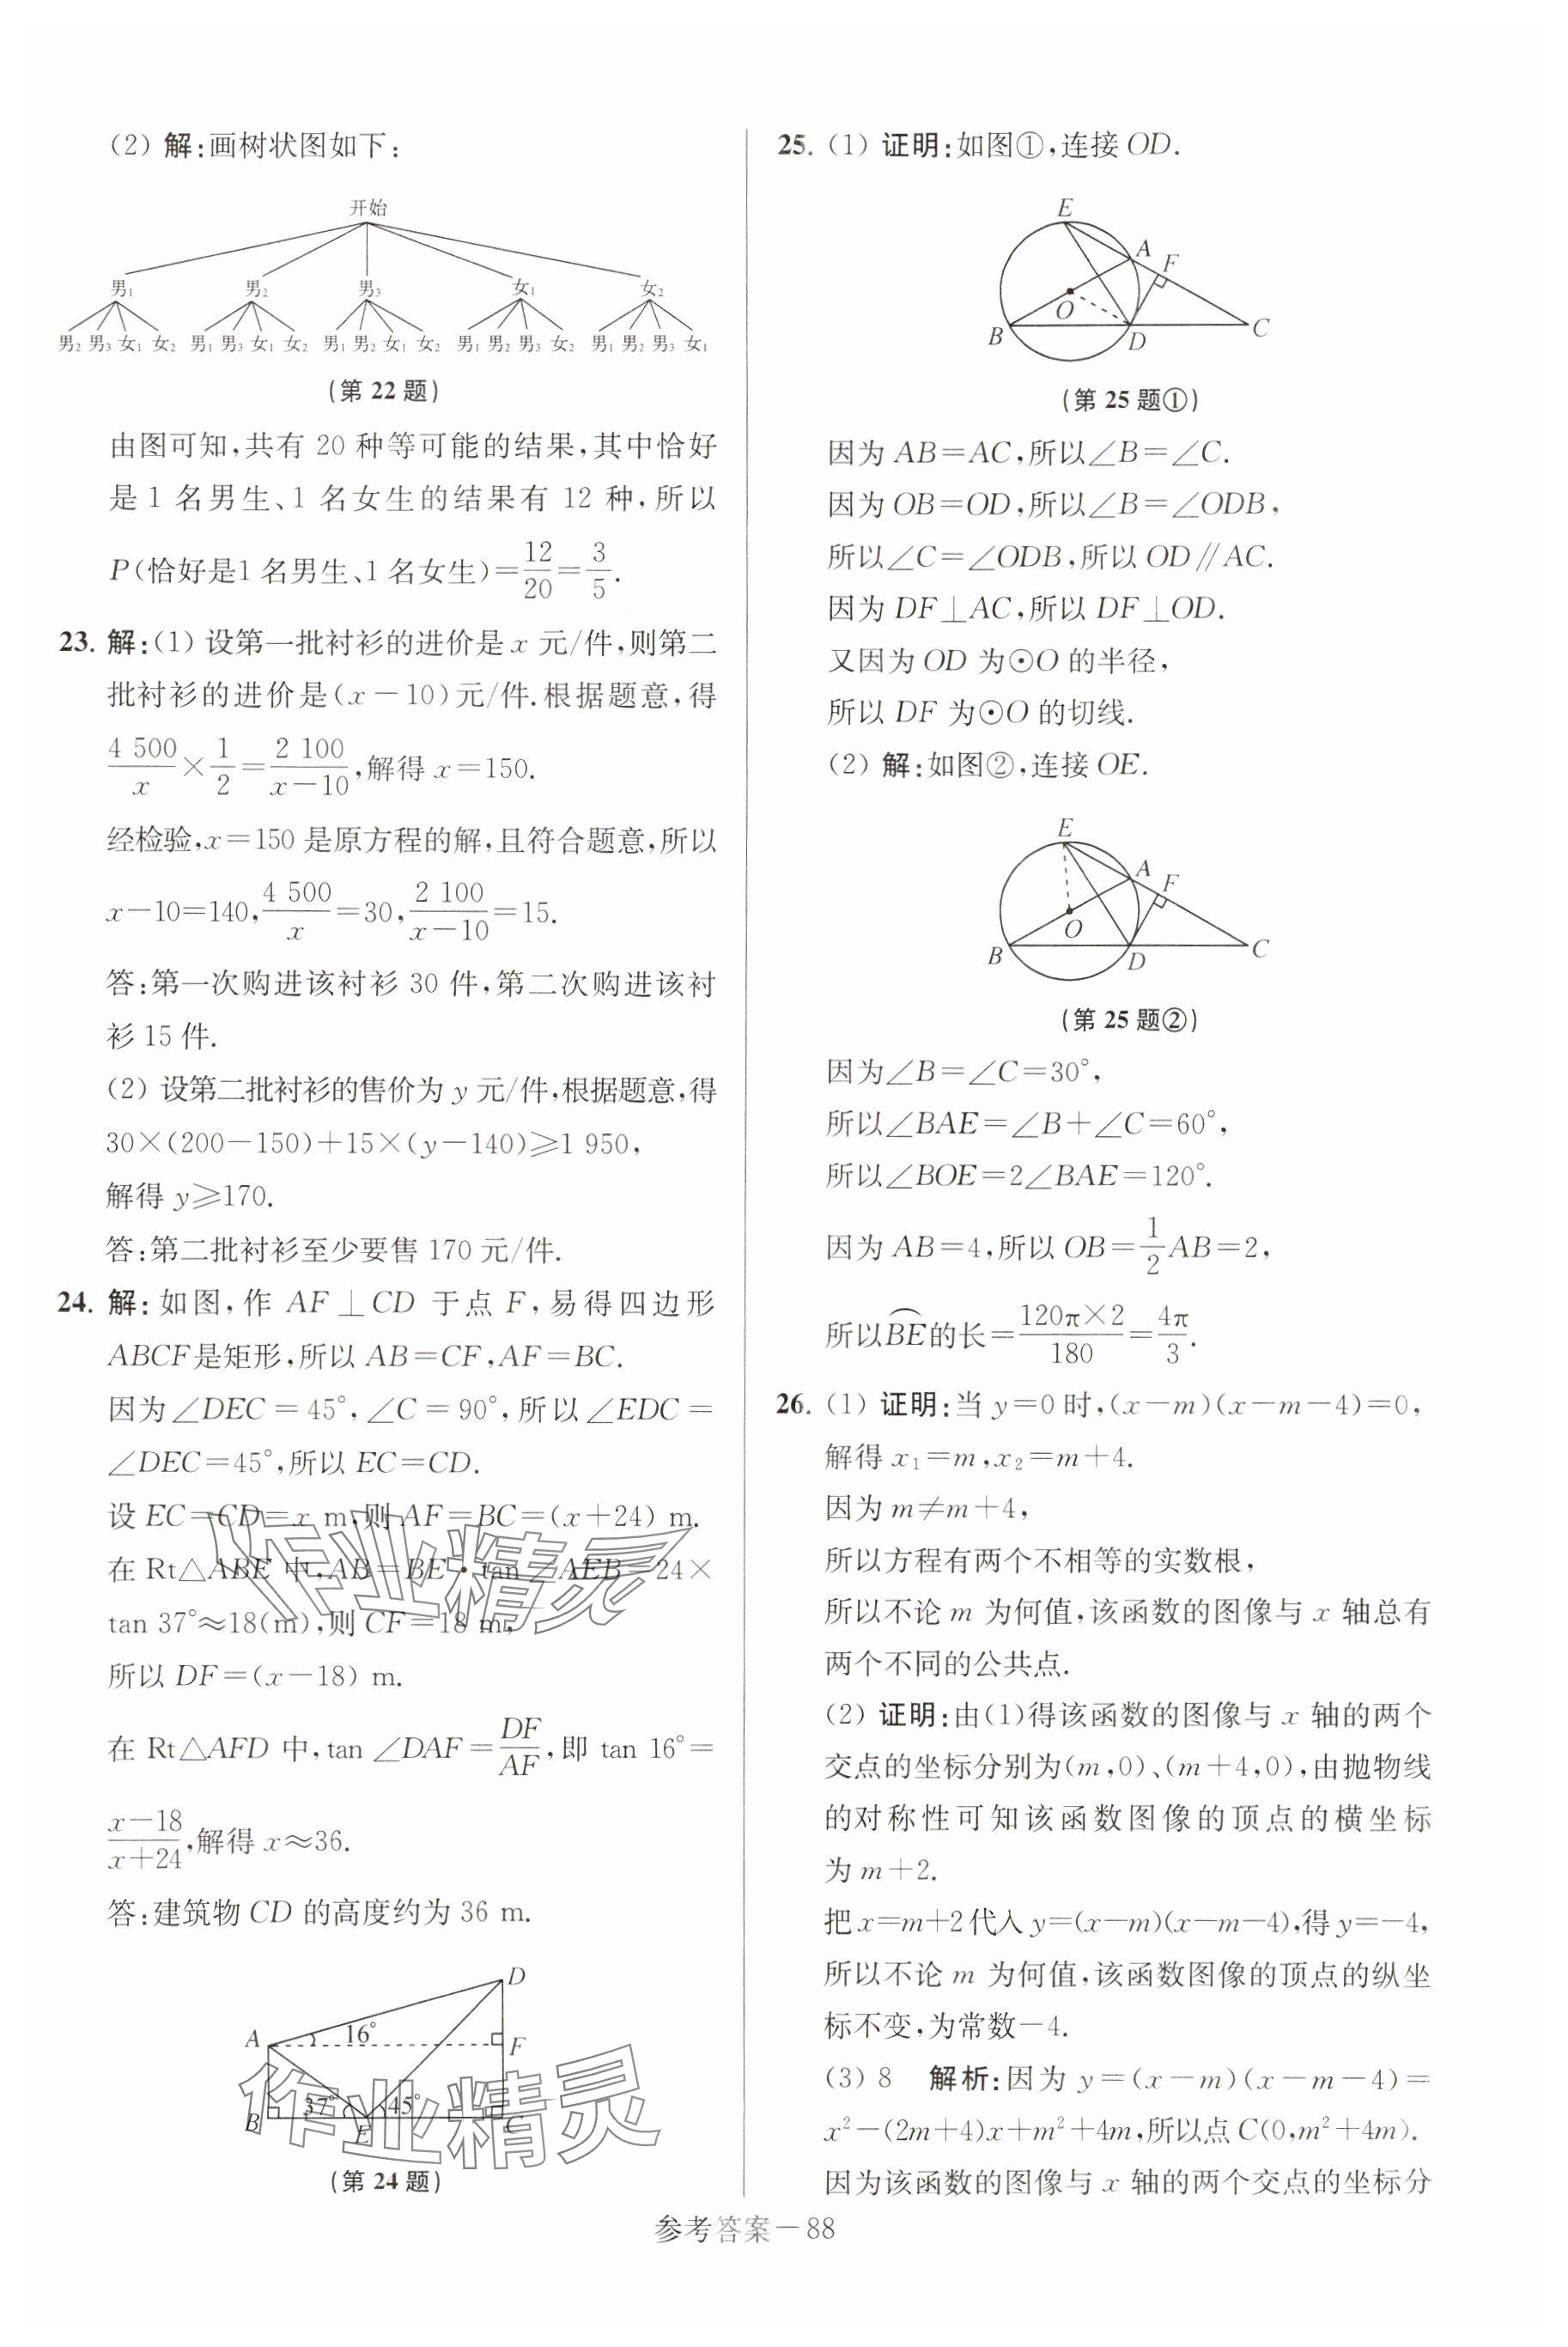 (2) 解:画树状图如下:
开始
男₁ 男₂ 男₃ 女₁ 女₂
男₂ 男₃ 女₁ 女₂ 男₁ 男₃ 女₁ 女₂ 男₁ 男₂ 女₁ 女₂ 男₁ 男₂ 男₃ 女₂ 男₁ 男₂ 男₃ 女₁
(第 22 题)
由图可知,共有 20 种等可能的结果,其中恰好
是 1 名男生、1 名女生的结果有 12 种,所以
P(恰好是1 名男生、1 名女生)=12/20=3/5.
23. 解:(1) 设第一批衬衫的进价是 x 元/件,则第二
批衬衫的进价是(x-10)元/件.根据题意,得
4 500/x×1/2=2 100/(x-10),解得 x=150.
经检验,x=150 是原方程的解,且符合题意,所以
x-10=140,4 500/x=30,2 100/(x-10)=15.
答:第一次购进该衬衫 30 件,第二次购进该衬
衫 15 件.
(2) 设第二批衬衫的售价为 y 元/件,根据题意,得
30×(200-150)+15×(y-140)≥1 950,
解得 y≥170.
答:第二批衬衫至少要售 170 元/件.
24. 解:如图,作 AF⊥CD 于点 F,易得四边形
ABCF是矩形,所以 AB=CF,AF=BC.
因为∠DEC=45°,∠C=90°,所以∠EDC=
∠DEC=45°,所以 EC=CD.
设 EC=CD=x m,则 AF=BC=(x+24) m.
在 Rt△ABE 中,AB=BE·tan∠AEB=24×
tan 37°≈18(m),则 CF=18 m,
所以 DF=(x-18) m.
在 Rt△AFD 中,tan∠DAF=DF/AF,即 tan 16°=
(x-18)/(x+24),解得 x≈36.
答:建筑物 CD 的高度约为 36 m.
D
A 16° F
B 37° E 45° C
(第 24 题)
作业精灵
作业精灵
25. (1) 证明:如图①,连接 OD.
E
A F
O
B D C
(第 25 题①)
因为 AB=AC,所以∠B=∠C.
因为 OB=OD,所以∠B=∠ODB,
所以∠C=∠ODB,所以 OD∥AC.
因为 DF⊥AC,所以 DF⊥OD.
又因为 OD 为⊙O 的半径,
所以 DF 为⊙O 的切线.
(2) 解:如图②,连接 OE.
E
A F
O
B D C
(第 25 题②)
因为∠B=∠C=30°,
所以∠BAE=∠B+∠C=60°,
所以∠BOE=2∠BAE=120°.
因为 AB=4,所以 OB=1/2AB=2,
所以⌒BE的长=120π×2/180=4π/3.
26. (1) 证明:当 y=0 时,(x-m)(x-m-4)=0,
解得 x₁=m,x₂=m+4.
因为 m≠m+4,
所以方程有两个不相等的实数根,
所以不论 m 为何值,该函数的图像与 x 轴总有
两个不同的公共点.
(2) 证明:由(1)得该函数的图像与 x 轴的两个
交点的坐标分别为(m,0)、(m+4,0),由抛物线
的对称性可知该函数图像的顶点的横坐标
为 m+2.
把 x=m+2代入 y=(x-m)(x-m-4),得 y=-4,
所以不论 m 为何值,该函数图像的顶点的纵坐
标不变,为常数-4.
(3) 8 解析:因为 y=(x-m)(x-m-4)=
x²-(2m+4)x+m²+4m,所以点 C(0,m²+4m).
因为该函数的图像与 x 轴的两个交点的坐标分
参考答案-88